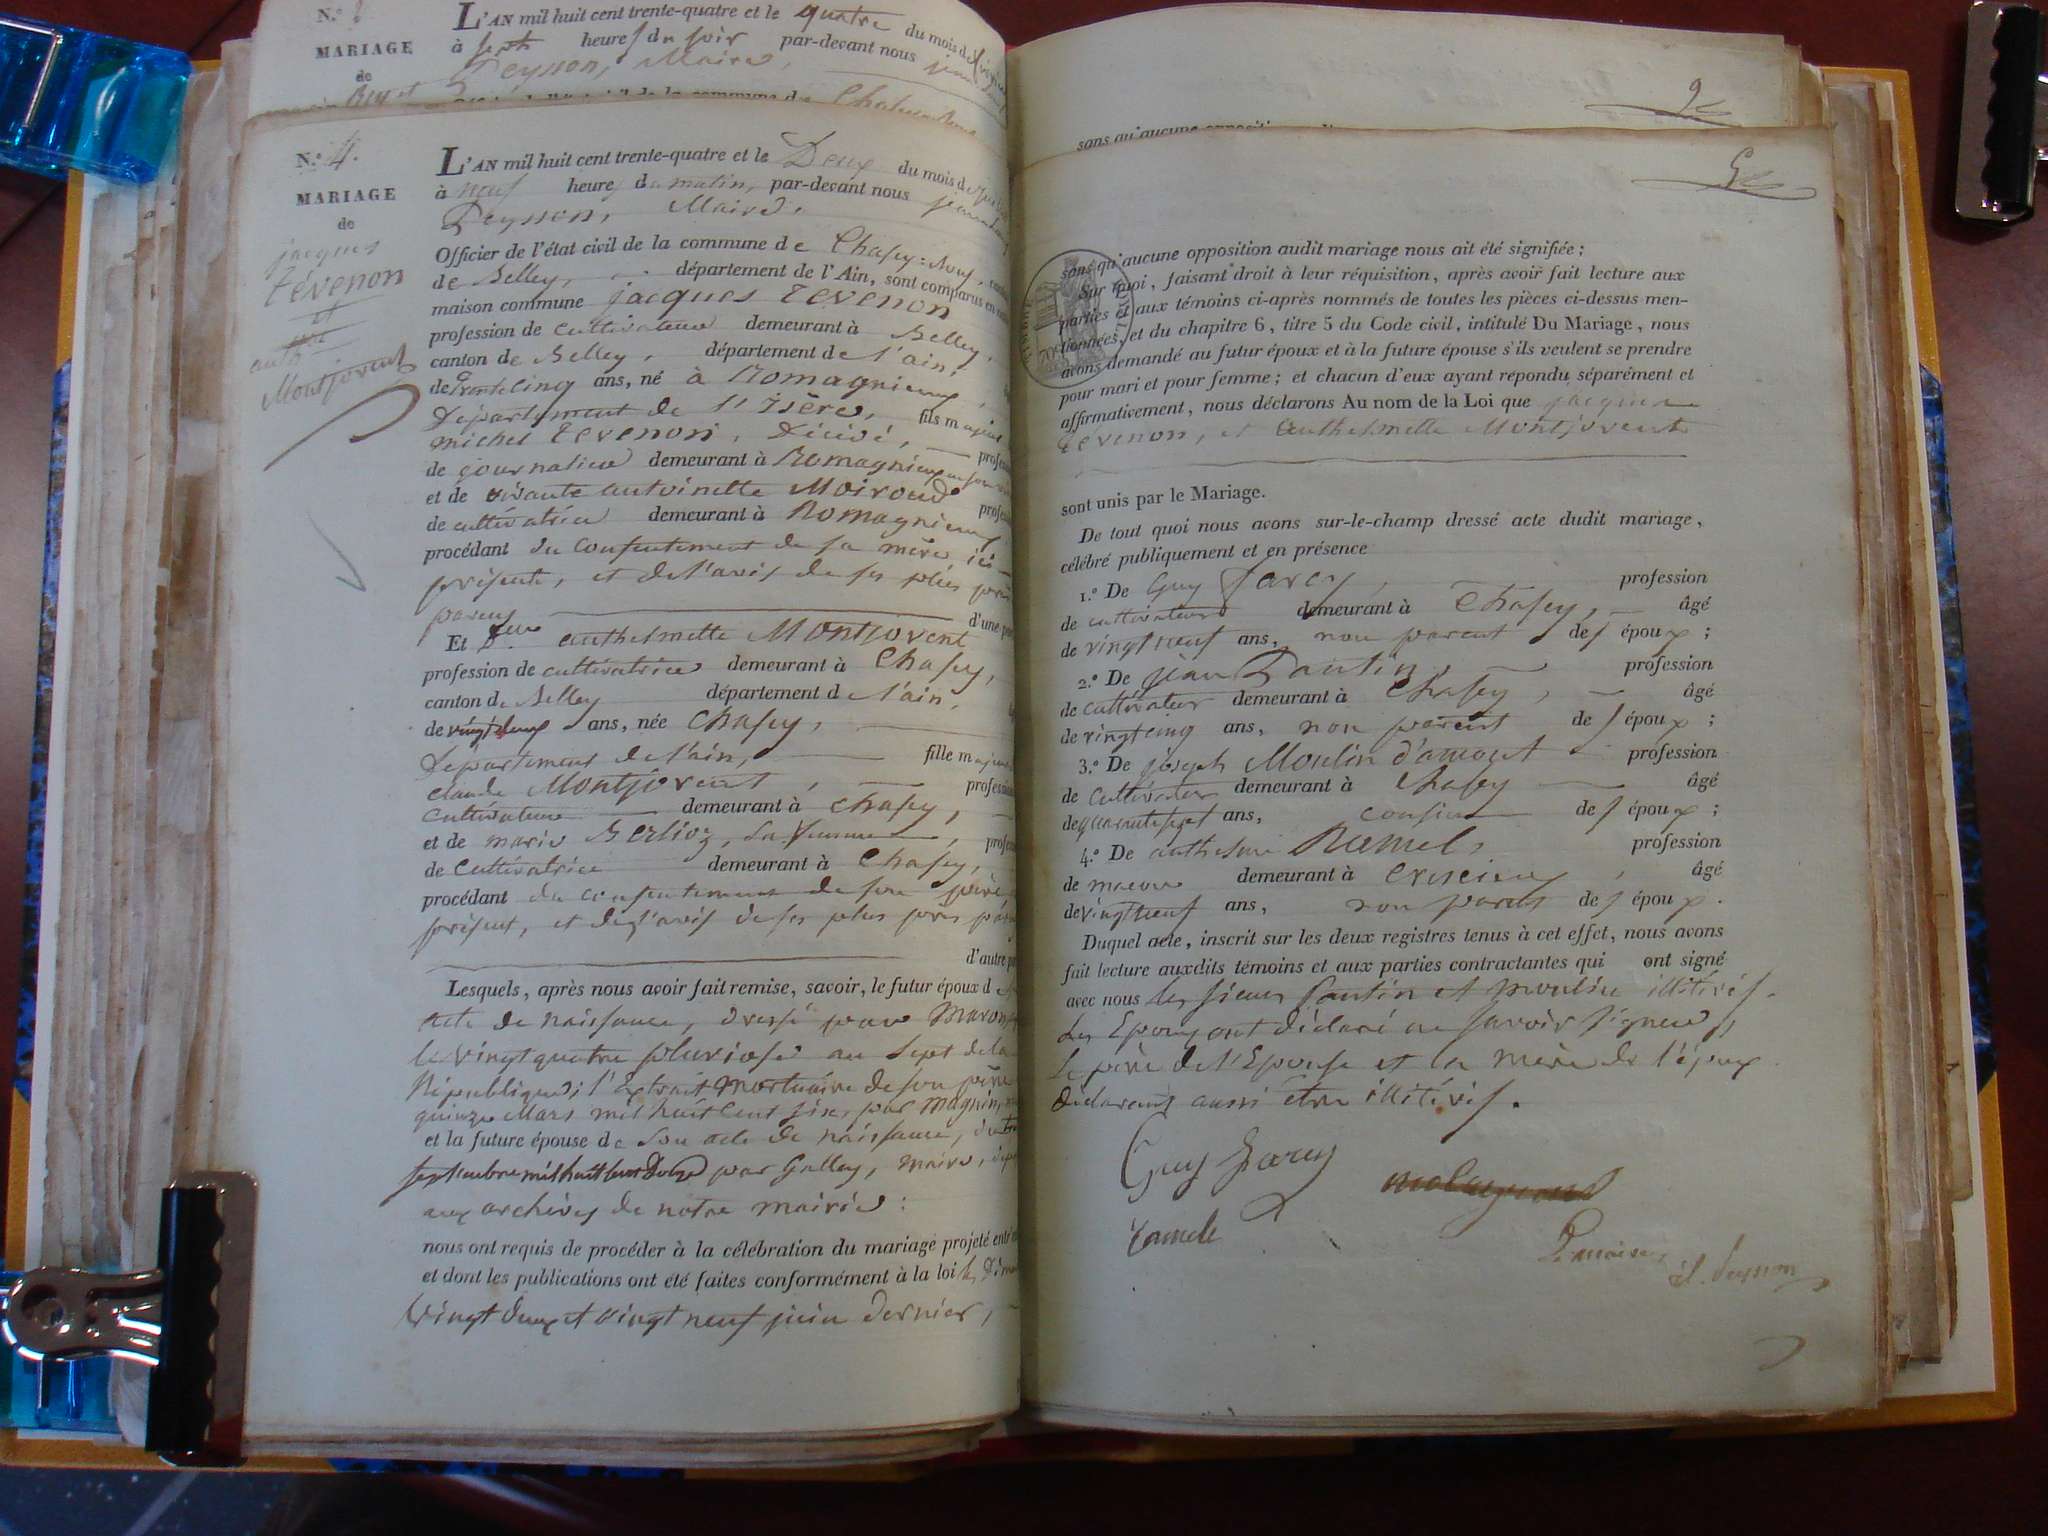 N.º
MARIAGE
de
L'AN mil huit cent trente-quatre et le quatre du mois de
à sept heures du soir par-devant nous
Peysson, Maire,
N.º 4.
MARIAGE
de
jacques
tévenon
et
anth
Montjovent
L'AN mil huit cent trente-quatre et le Deux du mois de
à neuf heures du matin, par-devant nous
Peysson, Maire,
Officier de l'état civil de la commune de Chasey-
de Belley, département de l'Ain, sont comparus en
maison commune jacques tevenon
profession de cultivateur demeurant à Belley,
canton de Belley, département de l'ain,
de trente cinq ans, né à Romagnieux,
Département de l'isère, fils majeur
michel tevenon, Décédé,
de journalier demeurant à Romagnieux
et de vivante antoinette Moiroud
de cultivatrice demeurant à Romagnieux
procédant du consentement de sa mère ici
présente, et de l'avis de ses plus près
parens d'une
Et anthelmette Montjovent
profession de cultivatrice demeurant à Chasey,
canton de Belley département de l'ain,
de vingt deux ans, née Chasey,
Département de l'ain, fille majeure
claude Montjovent,
cultivateur demeurant à chasey,
et de marie Berlioz, sa femme,
de cultivatrice demeurant à Chasey,
procédant du consentement de son père
présent, et de l'avis de ses plus près
d'autre
Lesquels, après nous avoir fait remise, savoir, le futur époux de
acte de naissance, dressé par
le vingt quatre pluviose an sept de la
République; l'Extrait mortuaire de son père
quinze Mars mil huit cent six, par magnin,
et la future épouse de son acte de naissance, du
septembre mil huit cent Douze par Galley, maire,
aux archives de notre mairie:
nous ont requis de procéder à la célébration du mariage projeté
et dont les publications ont été faites conformément à la loi les
vingt deux et vingt neuf juin dernier,
9
sans qu'aucune
5
sans qu'aucune opposition audit mariage nous ait été signifiée;
Sur quoi, faisant droit à leur réquisition, après avoir fait lecture aux
parties et aux témoins ci-après nommés de toutes les pièces ci-dessus men-
tionnées, et du chapitre 6, titre 5 du Code civil, intitulé Du Mariage, nous
avons demandé au futur époux et à la future épouse s'ils veulent se prendre
pour mari et pour femme; et chacun d'eux ayant répondu séparément et
affirmativement, nous déclarons Au nom de la Loi que jacques
tévenon, et anthelmette Montjovent
sont unis par le Mariage.
De tout quoi nous avons sur-le-champ dressé acte dudit mariage,
célébré publiquement et en présence
1.º De Guy Farcy, profession
de cultivateur demeurant à Chasey, âgé
de vingt neuf ans, non parent des époux;
2.º De jean Pantin, profession
de cultivateur demeurant à Chasey, âgé
de vingt cinq ans, non parent des époux;
3.º De joseph Moulin d'amont profession
de cultivateur demeurant à Chasey âgé
de quarante sept ans, cousin des époux;
4.º De anthelme Rumel, profession
de macon demeurant à , âgé
de vingt neuf ans, non parent des époux.
Duquel acte, inscrit sur les deux registres tenus à cet effet, nous avons
fait lecture auxdits témoins et aux parties contractantes qui ont signé
avec nous les sieurs Pantin et moulin illitérés.
Les Epoux ont déclaré ne savoir signer,
Le père de l'Epouse et la mère de l'époux
déclarent aussi être illitérés.
Guy Farcy
Le maire,
Peysson